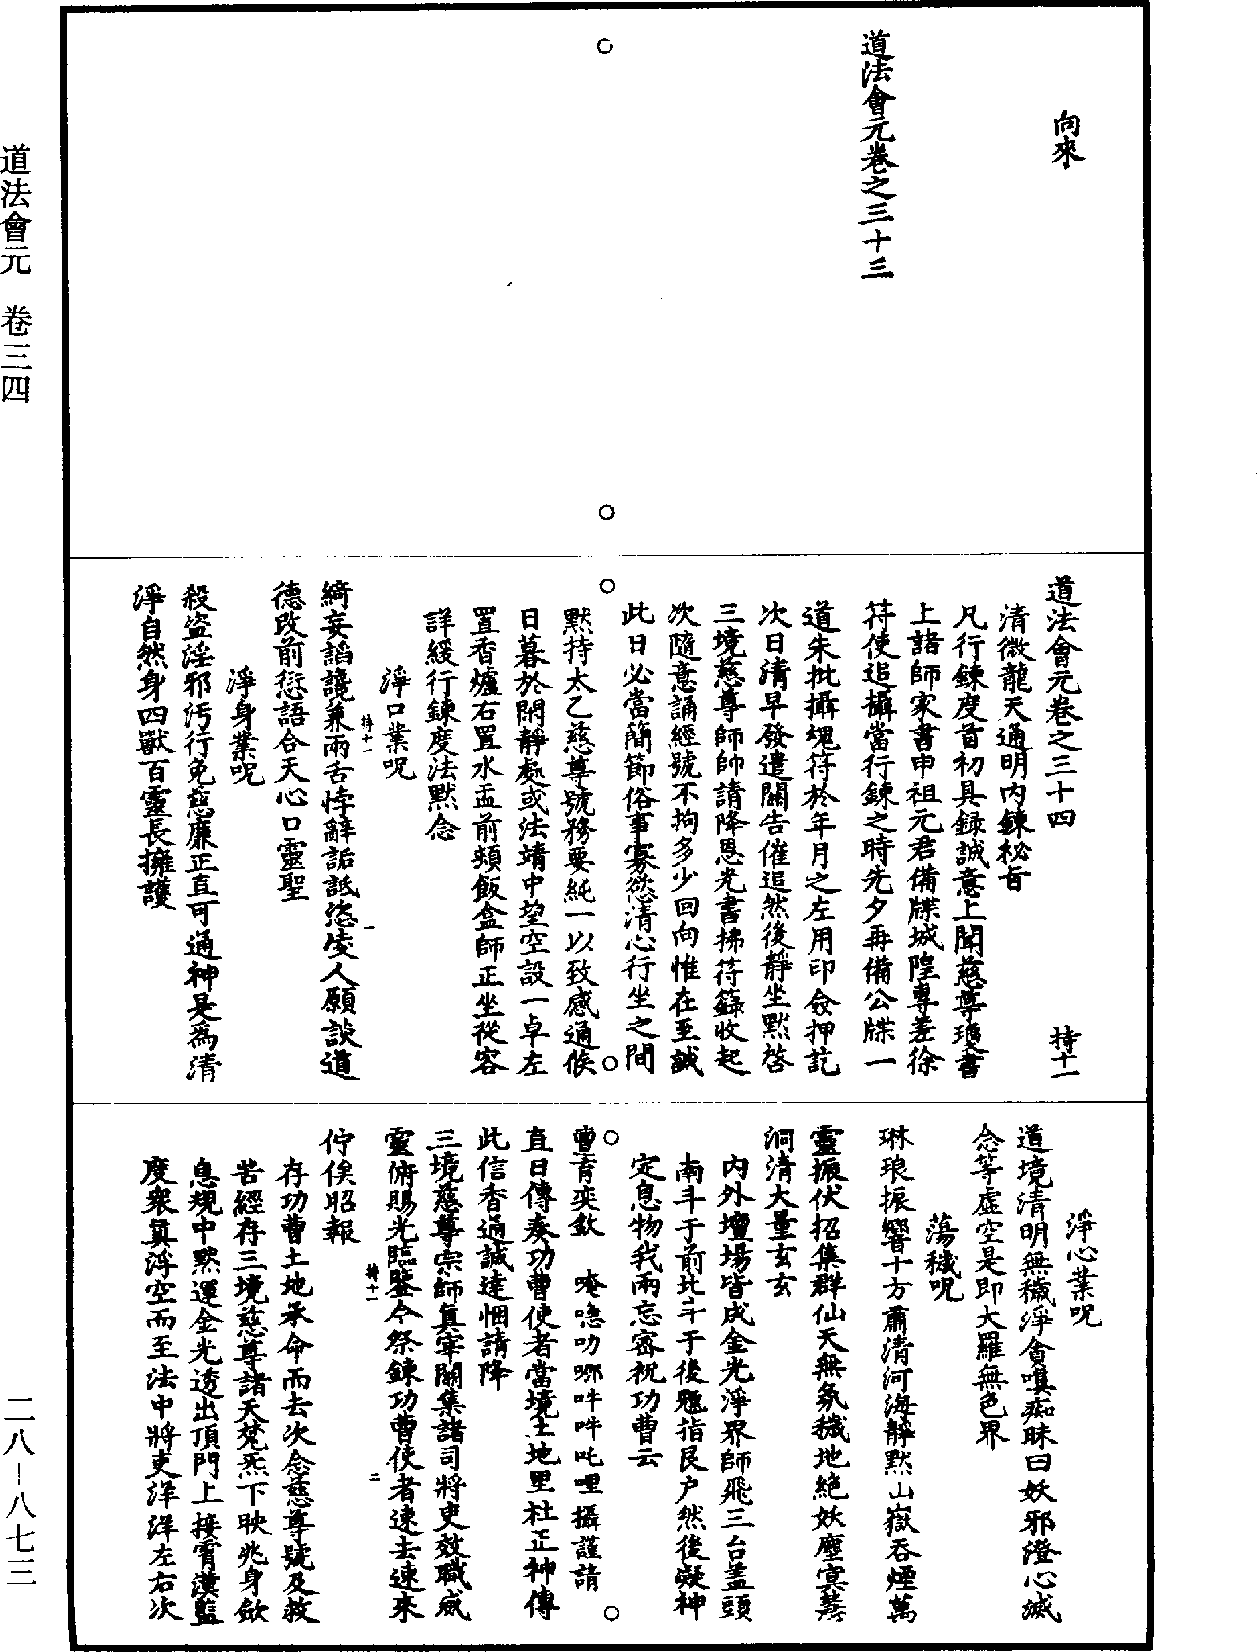 向來
道法會元卷之三十三
道法會元卷之三十四　持十一
清微龍天通明内鍊秘旨
凡行鍊度首初具録誠意上聞慈尊瓊書
上諸師家書申祖元君備牒城隍專差徐
符使追攝當行鍊之時先夕再備公牒一
道朱批攝魂符於年月之左用印僉押訖
次日清早發遣關告催追然後靜坐默啓
三境慈尊師帥請降恩光書拂符籙收起
次隨意誦經號不拘多少回向惟在至誠
此日必當簡節俗事寡慾清心行坐之間
默持太乙慈尊號務要純一以致感通候
日暮於閑靜處或法靖中望空設一卓左
置香爐右置水盂前頰飯盒師正坐從容
詳緩行鍊度法默念
淨口業呪
綺妄謟譊兼兩舌悖辭詬詆恣凌人願談道
德改前愆語合天心口靈聖
淨身業呪
殺盜淫邪汚行免慈廉正直可通神是為清
淨自然身四獸百靈長擁護
淨心業呪
道境清明無穢淨貪嗔痴昧曰妖邪澄心滅
念等虛空是即大羅無色界
蕩穢呪
琳琅振響十方肅清河海靜默山嶽吞煙萬
靈振伏招集群仙天無氛穢地絶妖塵冥慧
洞清大量玄玄
内外壇場皆成金光淨界師飛三台蓋頭
南斗于前北斗于後魁指艮户然後凝神
定息物我兩忘密祝功曹云
曹育奕欽　唵噫叨哪吽吽吒哩攝謹請
直日傳奏功曹使者當境土地里社正神傳
此信香通誠達悃請降
三境慈尊宗師真宰關集諸司將吏效職威
靈俯賜光臨鑒今祭鍊功曹使者速去速來
佇俟昭報
存功曹土地承命而去次念慈尊號及救
苦經存三境慈尊諸天梵炁下映兆身歛
息規中默運金光透出頂門上接霄漢監
度衆真浮空而至法中將吏洋洋左右次
持十一
一
持十一
二
道法會元　卷三四
二八－八七三